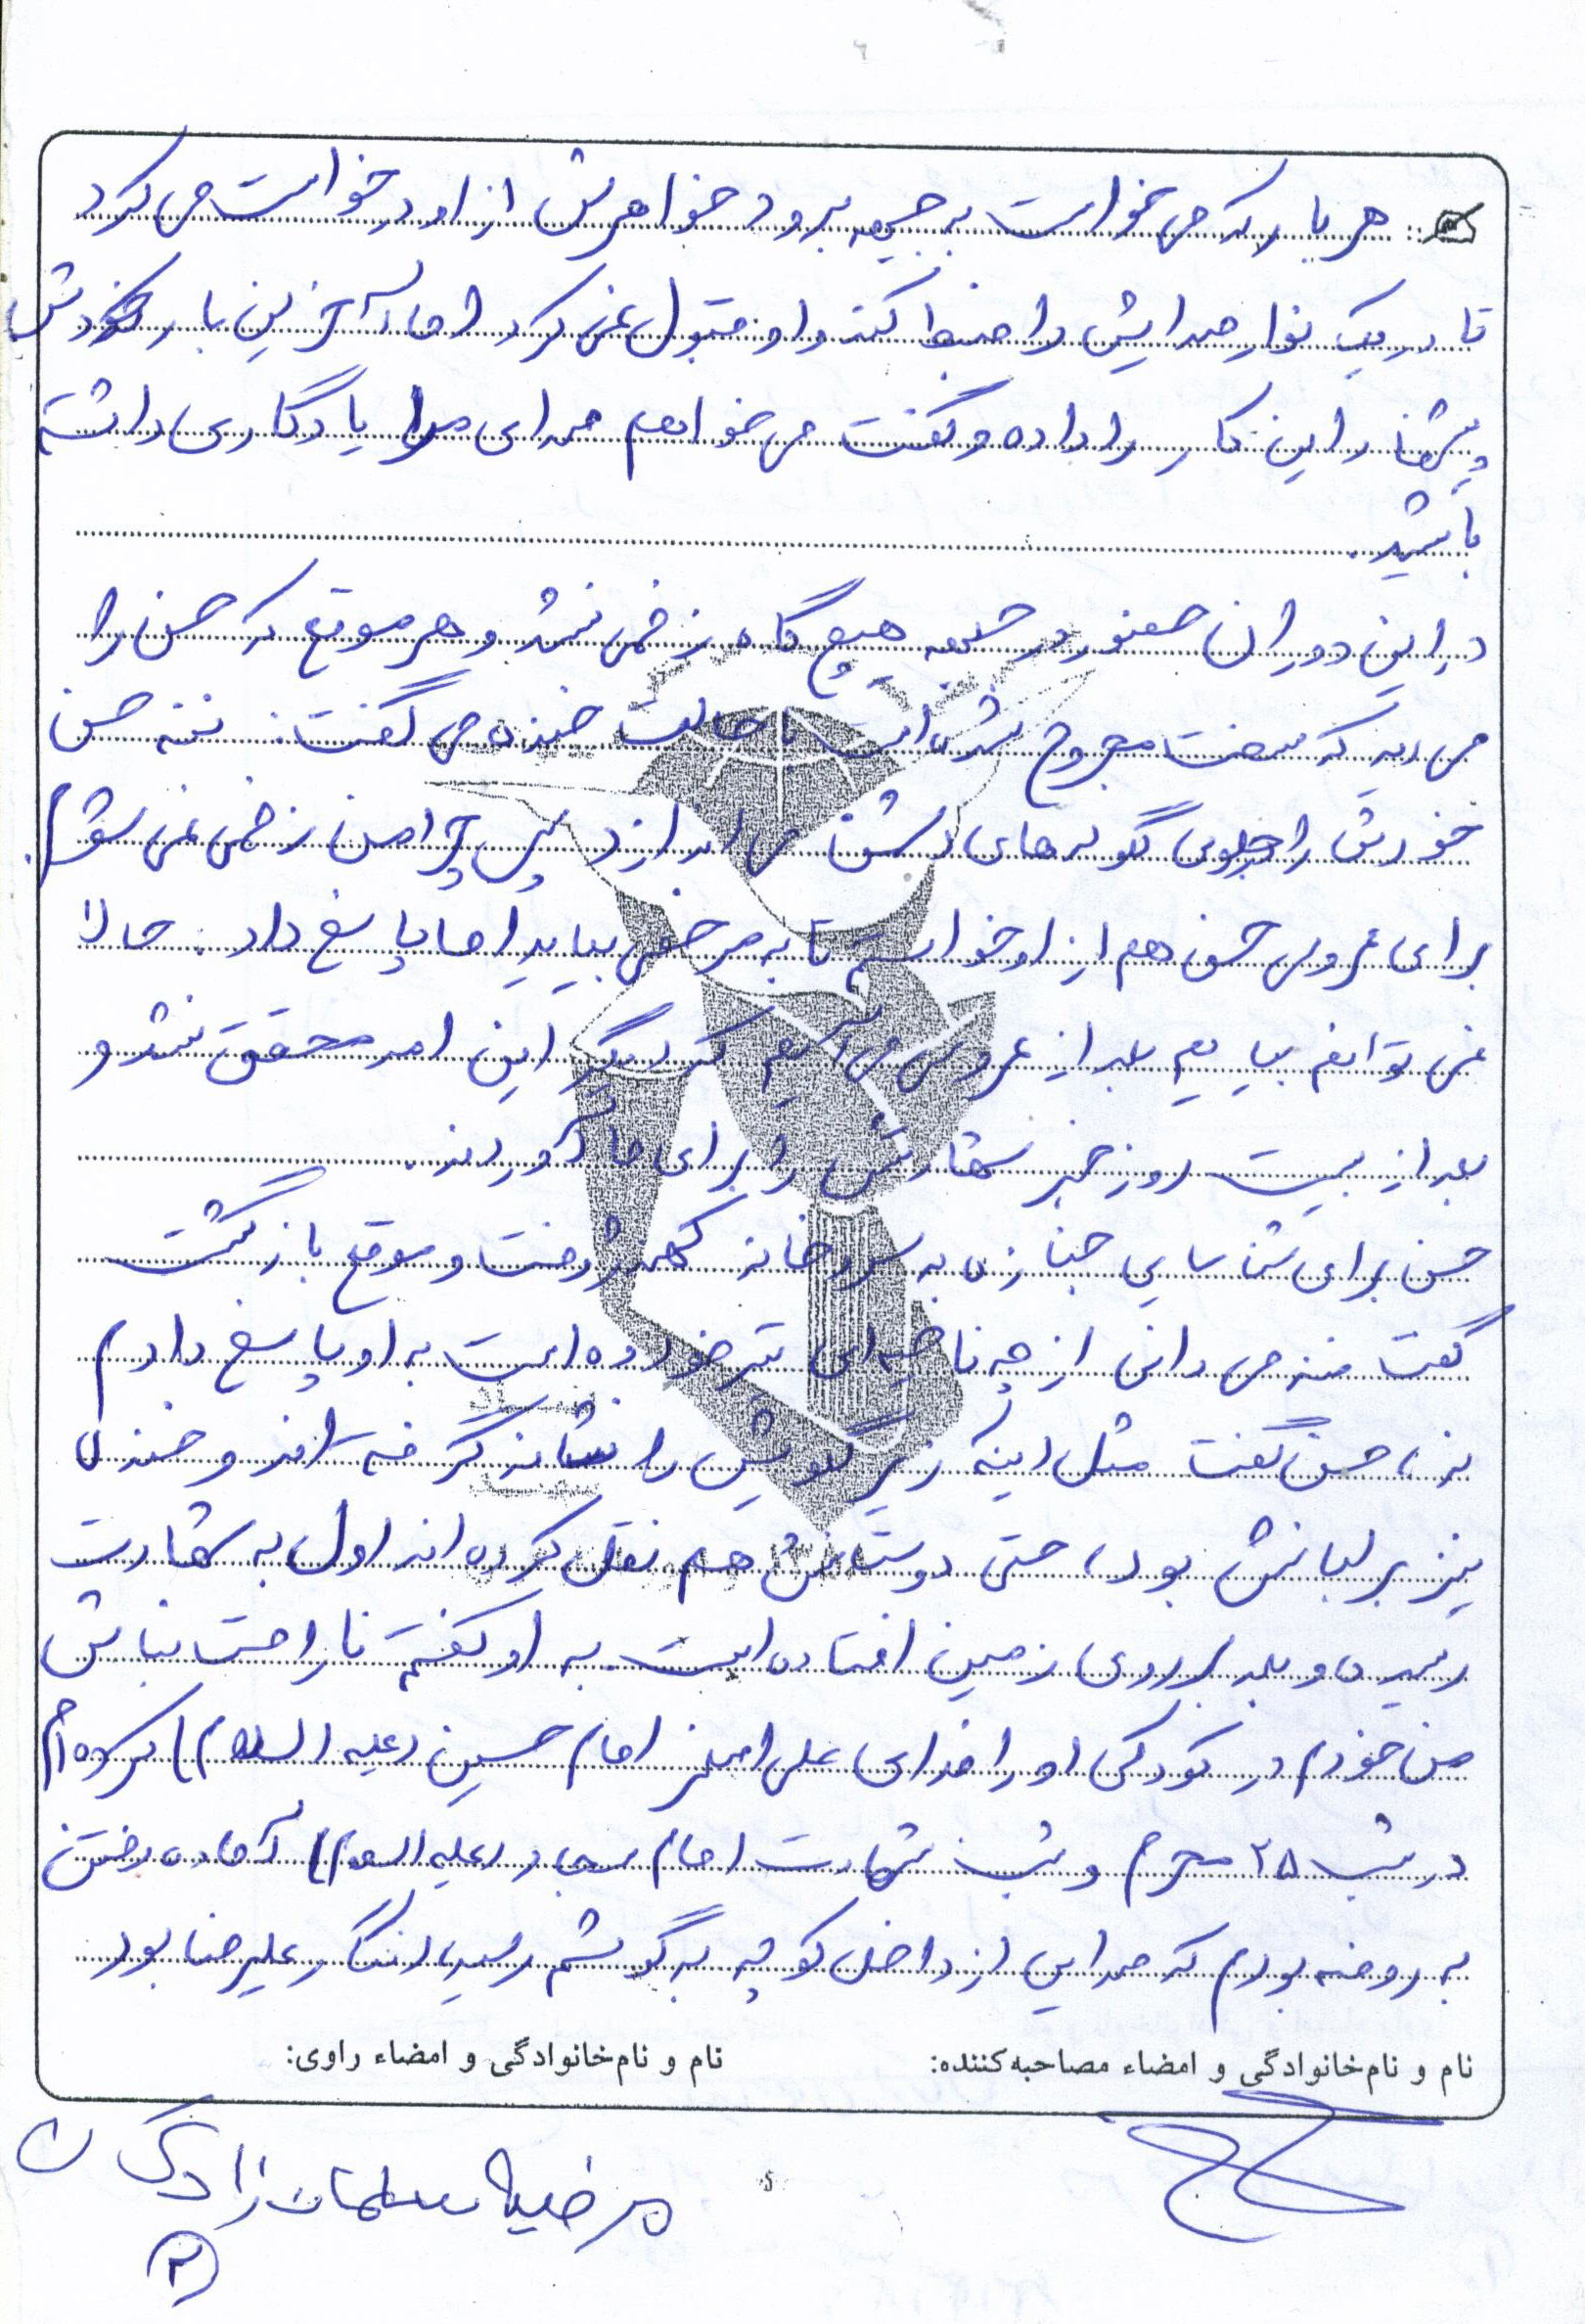 هر بار که می‌خواست به جبهه برود خواهرش از او درخواست می‌کرد
تا در یک نوار صدایش را ضبط کند و او قبول نمی‌کرد اما آخرین بار خودش
پیشنهاد این کار را داده و گفت می‌خواهم صدای مرا یادگاری داشته
باشید.
در این دوران حضور در جبهه هیچ گاه زخمی نشد و هر موقع که حسن را
می‌دید که سخت مجروح شده است با حالت خنده می‌گفت: ننه حسن
خودش را جلوی گلوله‌های دشمن می‌اندازد پس چرا من زخمی نمی‌شوم.
برای عروسی حسن هم از او خواستم تا به مرخصی بیاید اما پاسخ داد: حالا
نمی‌توانم بیایم بعد از عروسی می‌آیم که دیگر این امر محقق نشد و
بعد از بیست روز خبر شهادتش را برای ما آوردند.
حسن برای شناسایی جنازه به سردخانه کهندژ رفت و موقع بازگشت
گفت ننه می‌دانی از چه ناحیه‌ای تیر خورده است به او پاسخ دادم
نه، حسن گفت مثل اینکه زیر گلویش را نشانه گرفته‌اند و خنده
نیز بر لبانش بود، حتی دوستانش هم نقل کرده‌اند اول به شهادت
رسیده و بعد بر روی زمین افتاده است. به او گفتم ناراحت نباش
من خودم در کودکی او را فدای علی اصغر امام حسین (علیه السلام) کرده‌ام
در شب ۲۵ محرم و شب شهادت امام سجاد (علیه السلام) آماده رفتن
به روضه بودم که صدایی از داخل کوچه به گوشم رسید، انگار علیرضا بود
نام و نام‌خانوادگی و امضاء مصاحبه‌کننده:
نام و نام‌خانوادگی و امضاء راوی:
مرضیه سلمان‌زادگان